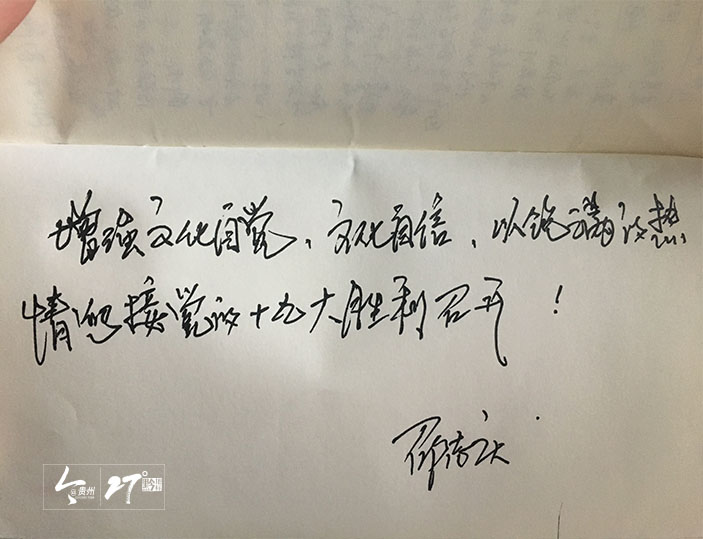 增强文化自觉、文化自信，以饱满的热
情迎接党的十九大胜利召开！
今
@贵州
27°